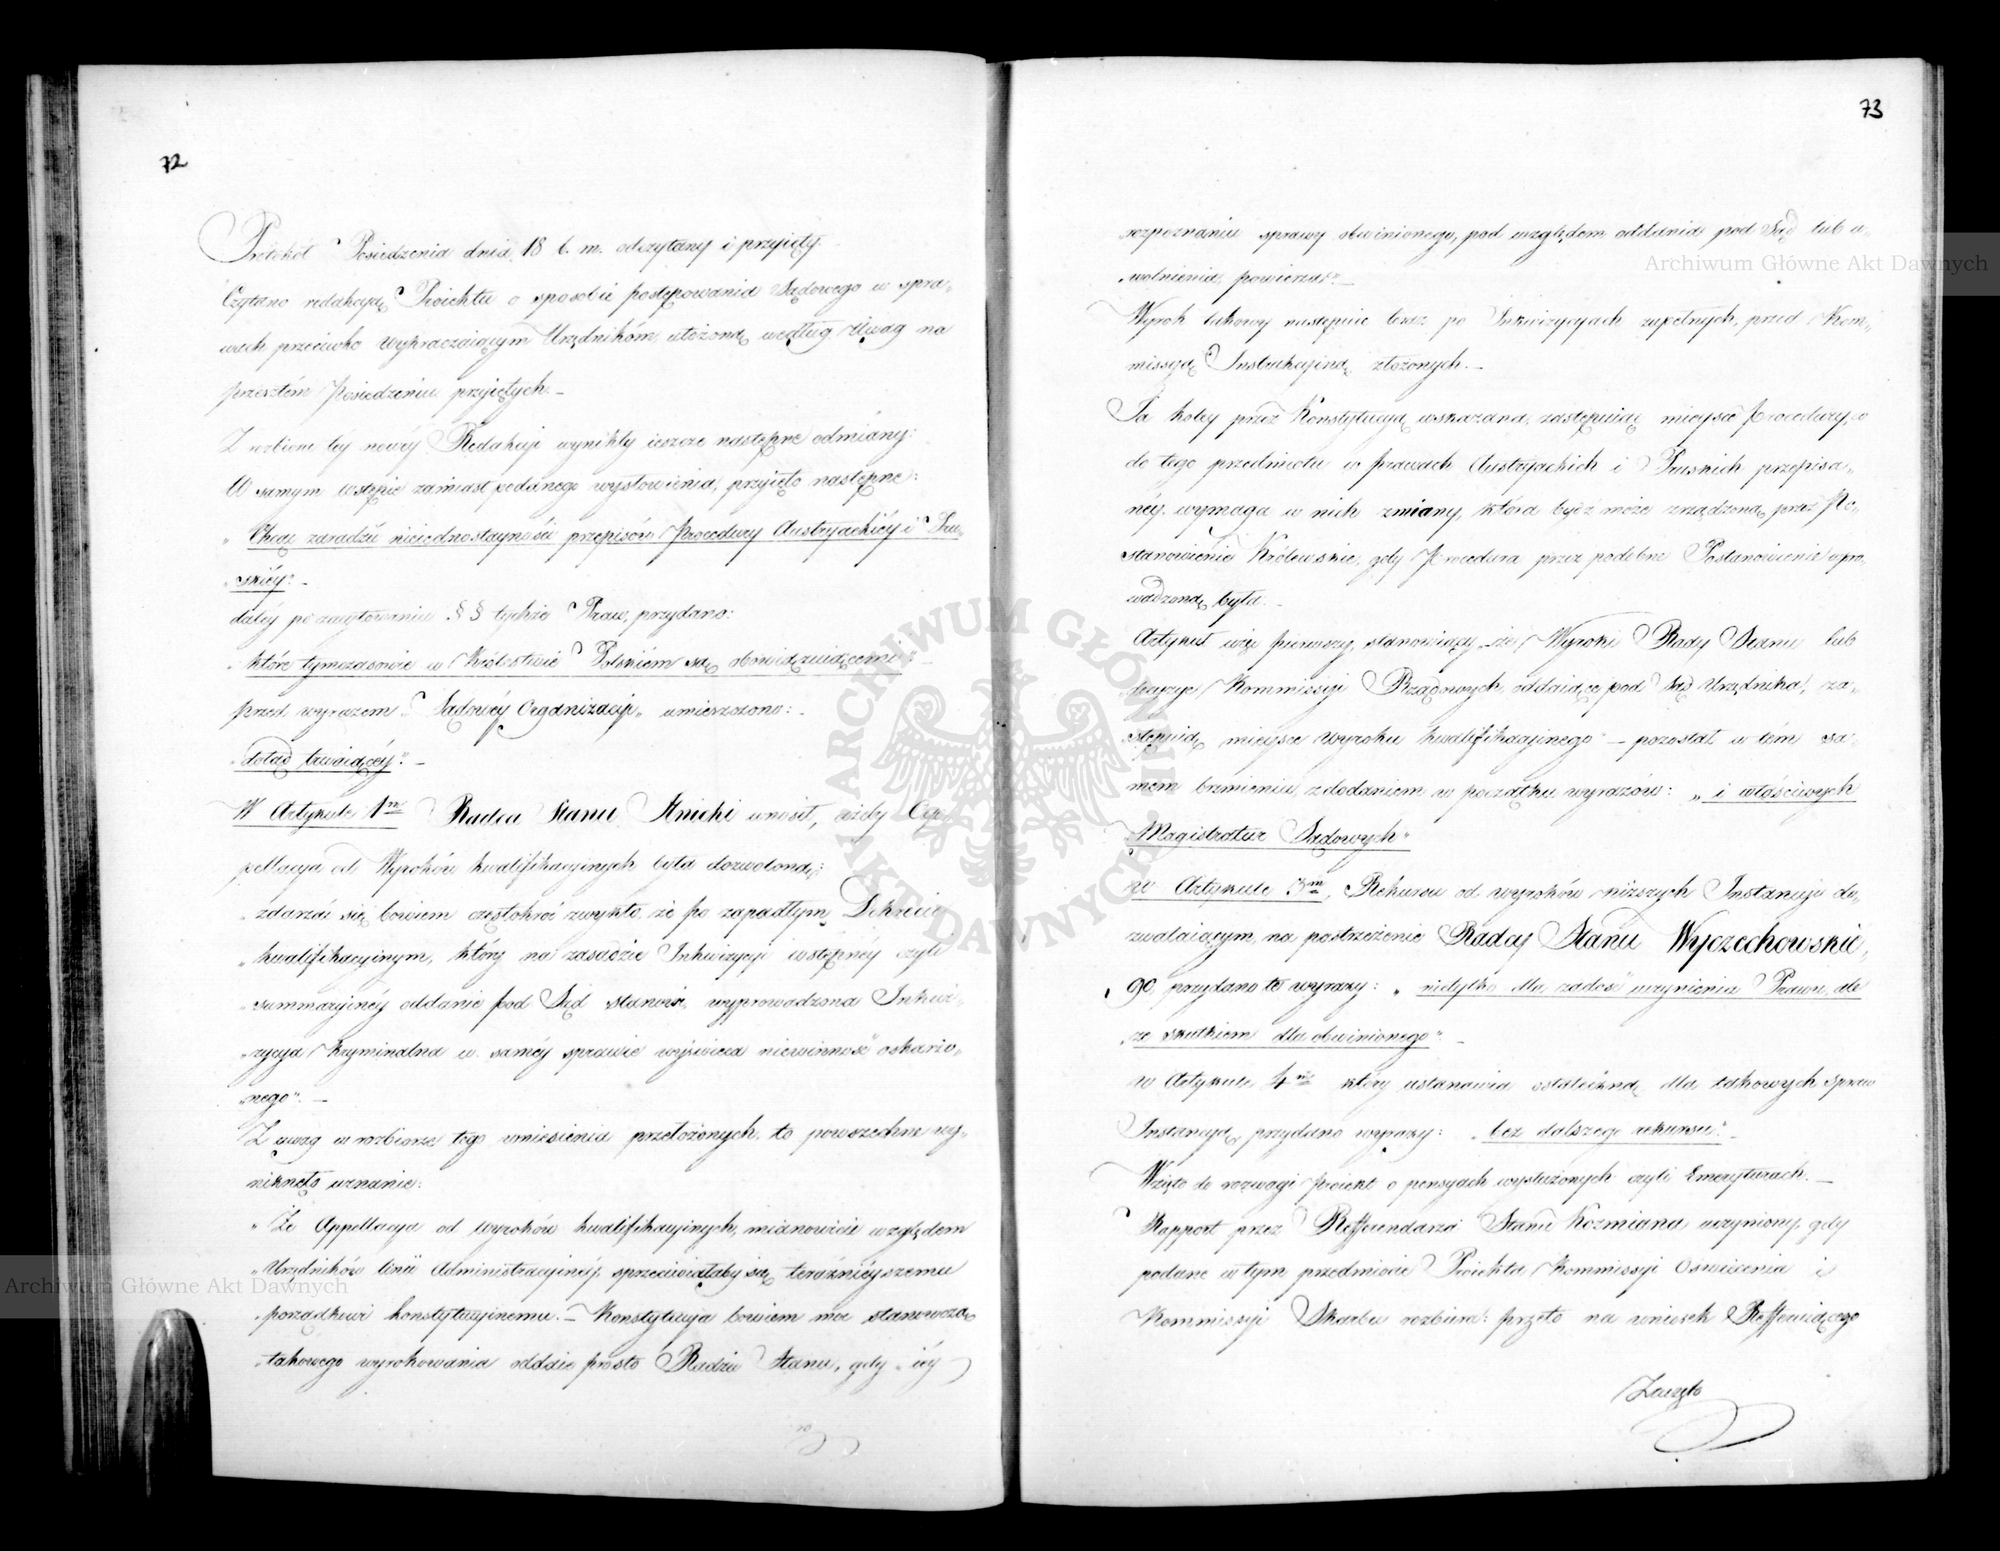 72
Protokół Posiedzenia dnia 18 b. m. odczytany i przyięty.
Czytano redakcyą Proiektu o sposobie postępowania Sądowego w spra„
wach przeciwko wykraczaiącym Urzędnikom, ułożoną według Uwag na
przeszłem Posiedzeniu przyiętych. –
Z rozbioru tey nowéy Redakcyi wynikły ieszcze następne odmiany:
W samym wstępie zamiast podanego wysłowienia, przyięto następne:
„Chcąc zaradzić nieiednostayności przepisów Procedury Austryackiéy i Pru„
„skiéy". –
daléy po zacytowaniu §§ tychże Praw, przydano:
„które tymczasowie w Królestwie Polskiém są obowiązuiącemi". –
przed wyrazem „Sądowéy Organizacyi„ umieszczono: –
„dotąd trwaiącéy". –
W Artykule 1m Radca Stanu Knicki wnosił, ażeby Ap„
pellacya od Wyroków kwalifikacyinych była dozwoloną:
„zdarzać się bowiem częstokroć zwykło, że po zapadłym Dekrecie
„kwalifikacyinym, który na zasadzie Inkwizycyi wstępnéy czyli
„summaryinéy oddanie pod Sąd stanowi, wyprowadzona Inkwi„
„zycya Kryminalna w saméy sprawie wyświeca niewinność oskarżo„
„nego". –
Z uwag w rozbiorze tego wniesienia przełożonych, to powszechne wy„
niknęło uznanie:
„Że Appellacya od wyroków kwalifikacyinych, mianowicie względem
„Urzędników linii Administracyinéy, sprzeciwiałaby się teraźnieyszemu
„porządkowi konstytucyinemu. – Konstytucya bowiem moc stanowczą
„takowego wyrokowania oddaie prosto Radzie Stanu, gdy „iéy
73
rozpoznaniu sprawy obwinionego, pod względem oddania pod Sąd lub u„
„wolnienia, powierza". –
Wyrok takowy następuie teraz po Inkwizycyach zupełnych, przed Kom„
missyą Instrukcyiną złożonych. –
Ta koley przez Konstytucyą wskazana, zastępuiąc mieysce Procedury, co
do tego przedmiotu w prawach Austryackich i Pruskich przepisa„
néy, wymaga w nich zmiany, która bydź może zrządzoną przez Po„
stanowienie Królewskie, gdy Procedura przez podobne Postanowienie wpro„
wadzoną była. –
Artykuł więc pierwszy, stanowiący „że Wyroki Rady Stanu lub
„decyzye Kommissyi Rządowych, oddaiące pod Sąd Urzędnika, za„
„stępuią mieysce wyroku kwalifikacyinego" – pozostał w tém sa„
mem brzmieniu, z dodaniem w początku wyrazów: „i właściwych
„Magistratur Sądowych"
W Artykule 3m, Rekursu od wyroków niższych Instancyi do„
zwalaiącym, na postrzeżenie Radcy Stanu Wyczechowskie„
go, przydano te wyrazy: „nietylko dla zadość uczynienia Prawu, ale
„ze skutkiem dla obwinionego". –
w Artykule 4m który ustanawia ostateczną dla takowych spraw
Instancyą, przydano wyrazy: „bez dalszego rekursu". –
Wzięto do rozwagi Proiekt o pensyach wysłużonych czyli Emeryturach. –
Rapport przez Refferendarza Stanu Koźmiana uczyniony, gdy
podane w tym przedmiocie Proiekta Kommissyi Oświecenia i
Kommissyi Skarbu rozbiera: przeto na wniosek Refferuiącego
Zaczęto
Archiwum Główne Akt Dawnych
Archiwum Główne Akt Dawnych
ARCHIWUM GŁÓWNE AKT DAWNYCH